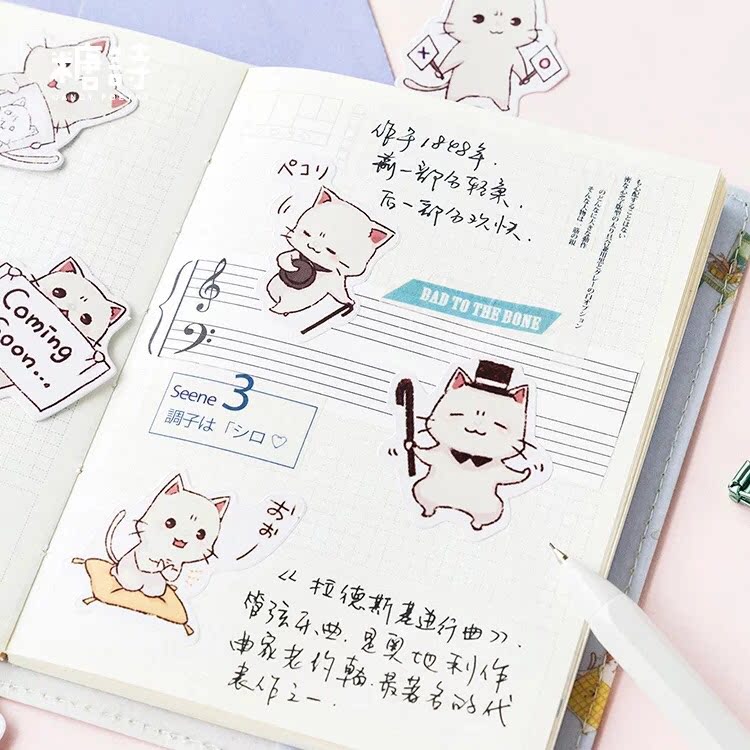 糖詩
作于1848年.
前一部分轻柔.
后一部分欢快.
ペコリ
BAD TO THE BONE
Coming
Soon...
Seene 3
調子は「シロ♡
おぉー
《拉德斯基进行曲》.
管弦乐曲.是奥地利作
曲家老约翰.最著名的代
表作之一.